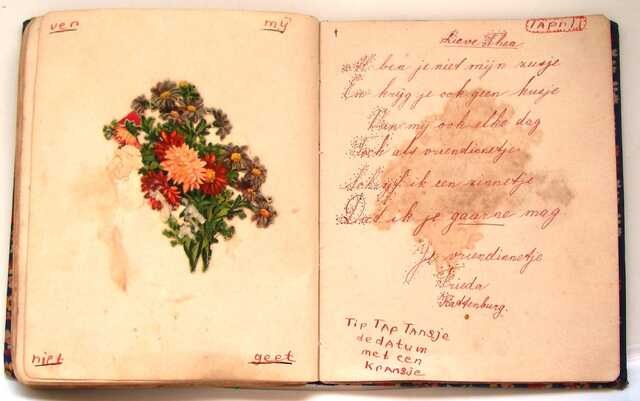 ven mij
niet geet
1 April
Lieve Thea
Al ben je niet mijn zusje
En krijg je ook geen kusje
Van mij ook elke dag
Toch als vriendinnetje
Schrijf ik een zinnetje
Dat ik je gaarne mag
Je vriendinnetje
Frieda
Rattenburg.
Tip Tap Tansje
de datum
met een
Kransje